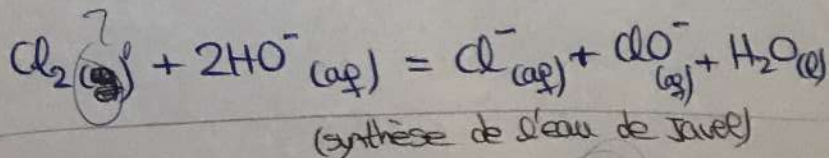 ?
Cl₂(g) + 2HO⁻(aq) = Cl⁻(aq) + ClO⁻(aq) + H₂O(l)
(synthèse de l'eau de Javel)